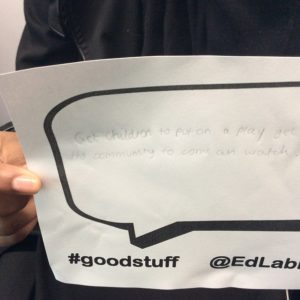 Get children to put on a play get
the community to come an watch
#goodstuff @EdLab